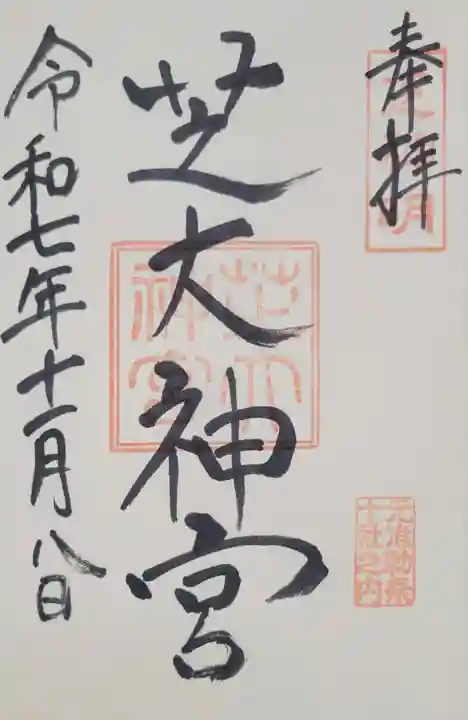 奉拝
芝大神宮
芝大神宮
元准勅祭
十社之内
令和七年十一月八日